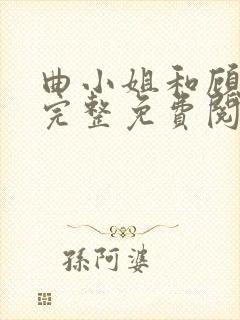 曲小姐和顾
完整免費閱
孫阿婆